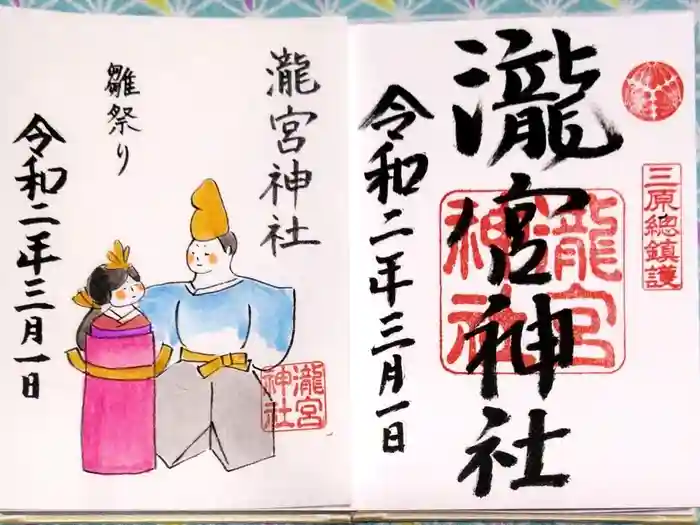 瀧宮神社
雛祭り
令和二年三月一日
瀧宮神社
三原總鎮護
瀧宮神社
瀧宮神社
令和二年三月一日